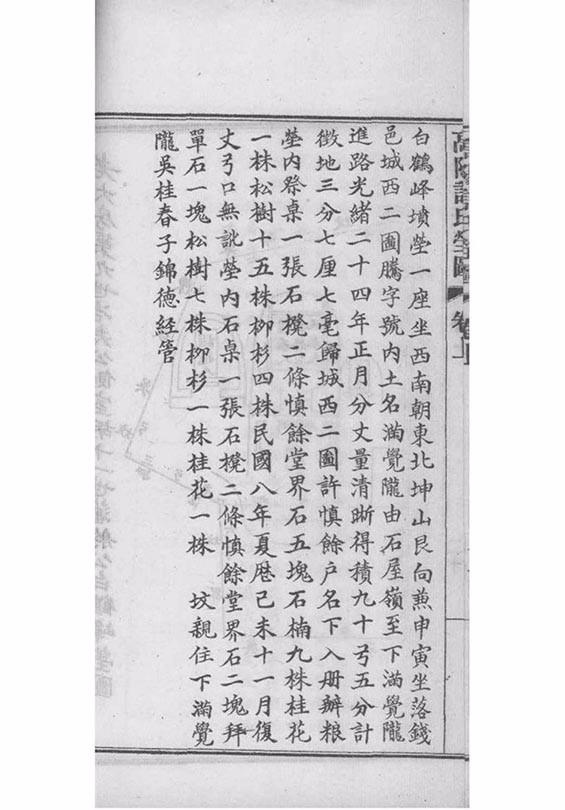 白鶴峰墳塋一座坐西南朝東北坤山艮向兼申寅坐落錢
邑城西二圖騰字號內土名滿覺隴由石屋嶺至下滿覺隴
進路光緒二十四年正月分丈量清晰得積九十弓五分計
徵地三分七厘七毫歸城西二圖許慎餘户名下入册辦粮
塋內祭桌一張石櫈二條慎餘堂界石五塊石楠九株桂花
一株松樹十五株柳杉四株民國八年夏厯己未十一月復
丈弓口無訛塋內石桌一張石櫈二條慎餘堂界石二塊拜
單石一塊松樹七株柳杉一株桂花一株 坟親住下滿覺
隴吳桂春子錦德經管